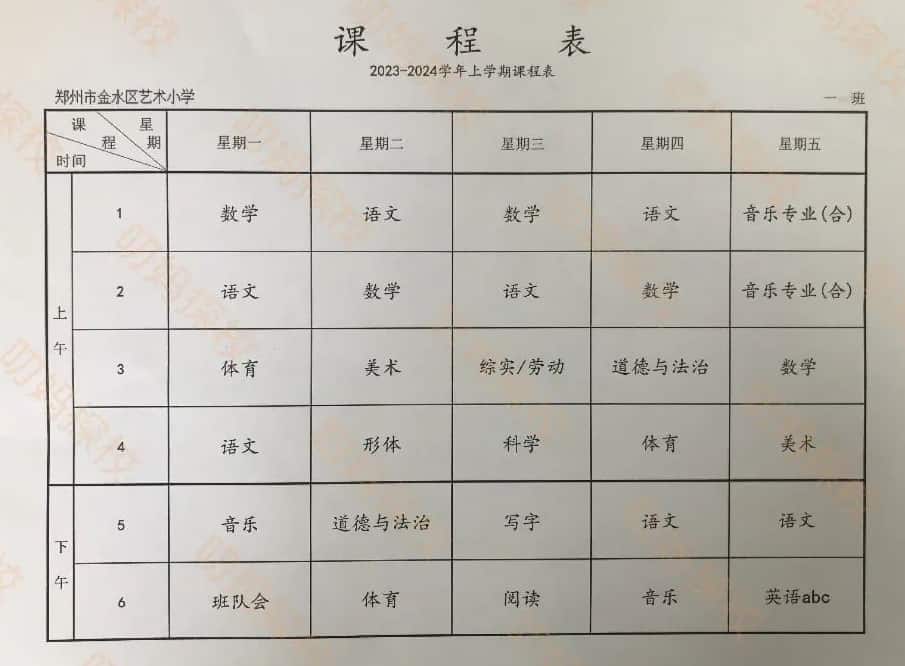 课 程 表
2023-2024学年上学期课程表
郑州市金水区艺术小学 一 班
课程 星期 时间 星期一 星期二 星期三 星期四 星期五
上午
1 数学 语文 数学 语文 音乐专业(合)
2 语文 数学 语文 数学 音乐专业(合)
3 体育 美术 综实/劳动 道德与法治 数学
4 语文 形体 科学 体育 美术
下午
5 音乐 道德与法治 写字 语文 语文
6 班队会 体育 阅读 音乐 英语abc
叨妈探校